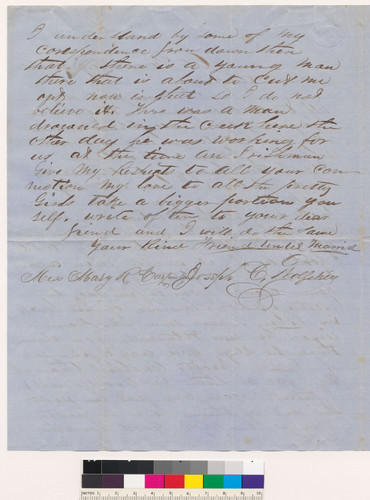 I understand by some of my
correspondence from down there
that there is a young man
there that is about to Cut me
out now is that so I do not
believe it. There was a man
drowned in the creek here the
other day he was working for
us at the time an Irishman
Give my respect to all your con
nection my love to all the pretty
Girls take a bigger portion your
self. write often to your dear
friend and I will do the same
Your Kind Friend until Married
Miss Mary R. Joseph C.